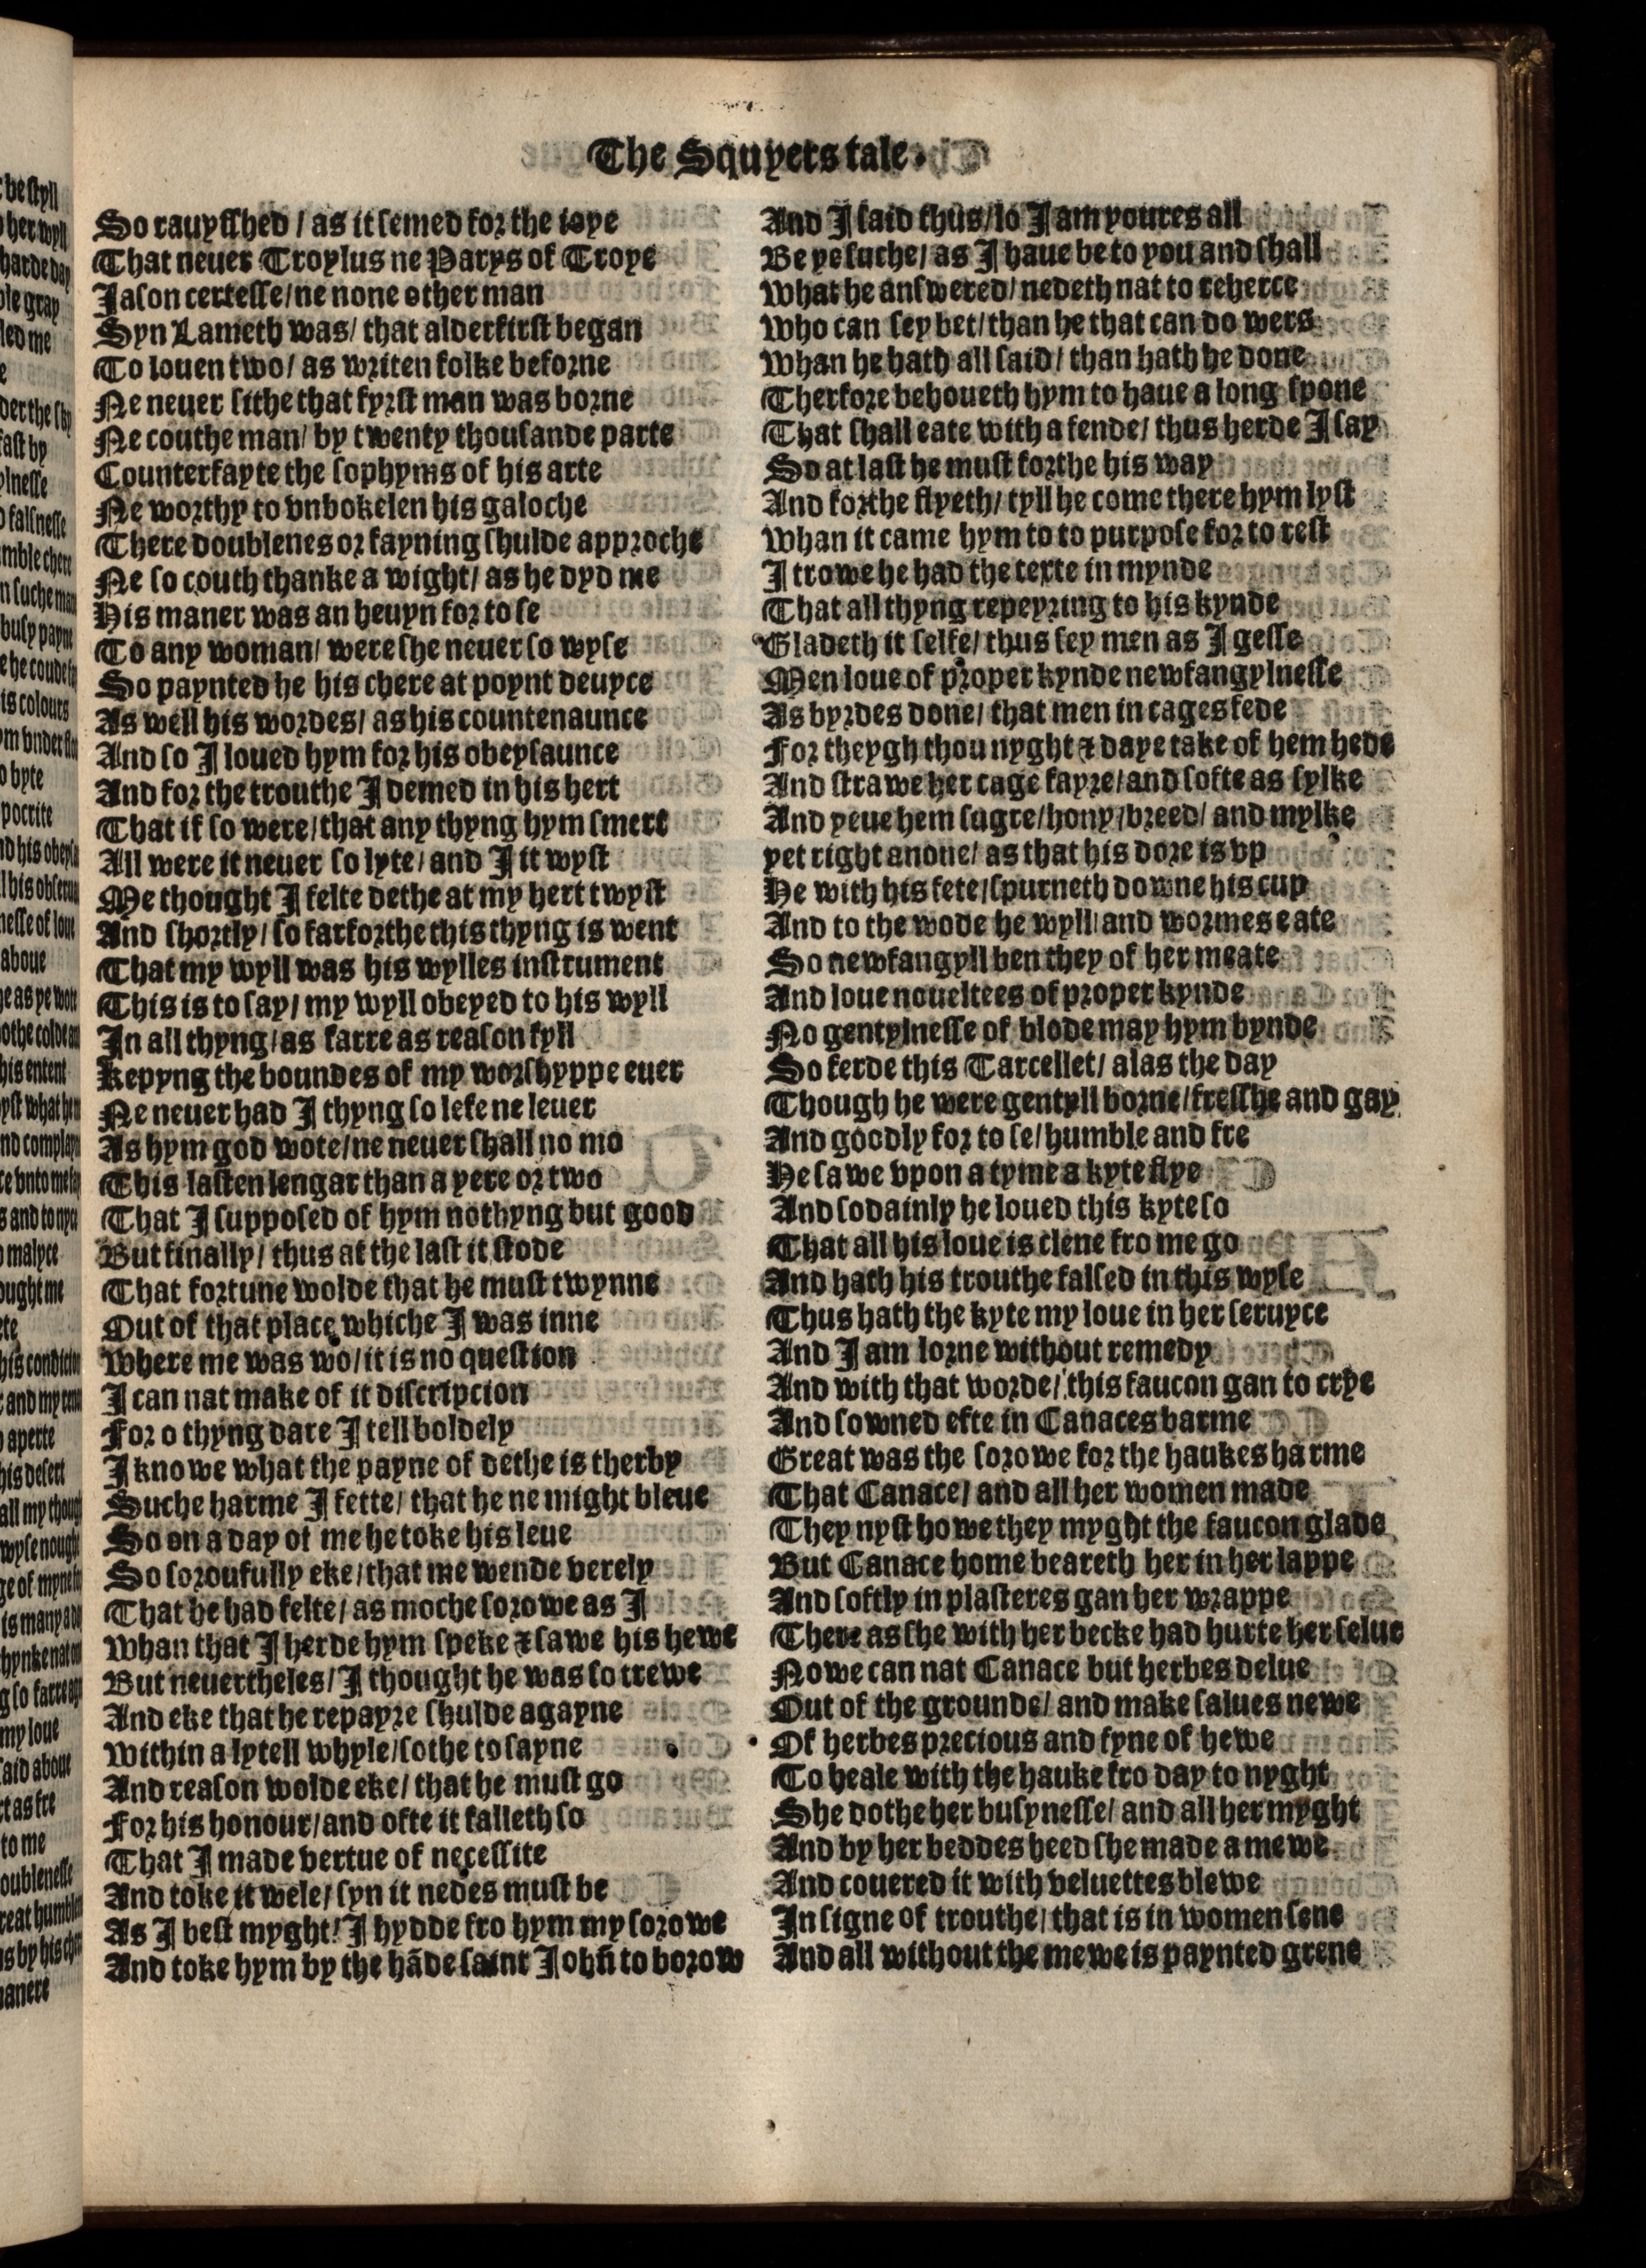 The Squyers tale.
So rauysshed / as it semed for the ioye
That neuer Troylus ne Parys of Troye
Jason certesse / ne none other man
Syn Lameth was / that alderfirst began
To louen two / as writen folke beforne
Ne neuer sithe that fyrst man was borne
Ne couthe man / by twenty thousande parte
Counterfayte the sophyms of his arte
Ne worthy to vnbokelen his galoche
There doublenes or fayning shulde approche
Ne so couth thanke a wight / as he dyd me
His maner was an heuyn for to se
To any woman / were she neuer so wyse
So paynted he his chere at poynt deuyce
As well his wordes / as his countenaunce
And so I loued hym for his obeysaunce
And for the trouthe I demed in his hert
That if so were / that any thyng hym smert
All were it neuer so lyte / and I it wyst
Me thought I felte dethe at my hert twyst
And shortly / so farforthe this thyng is went
That my wyll was his wylles instrument
This is to say / my wyll obeyed to his wyll
In all thyng / as farre as reason fyll
Kepyng the boundes of my worshyppe euer
Ne neuer had I thyng so lefe ne leuer
As hym god wote / ne neuer shall no mo
This lasten lengar than a yere or two
That I supposed of hym nothyng but good
But finally / thus at the last it stode
That fortune wolde that he must twynne
Out of that place whiche I was inne
Where me was wo / it is no question
I can nat make of it discripcion
For o thyng dare I tell boldely
I knowe what the payne of dethe is therby
Suche harme I fette / that he ne might bleue
So on a day of me he toke his leue
So soroufully eke / that me wende verely
That he had felte / as moche sorowe as I
Whan that I herde hym speke & sawe his hewe
But neuertheles / I thought he was so trewe
And eke that he repayre shulde agayne
Within a lytell whyle / sothe to sayne
And reason wolde eke / that he must go
For his honour / and ofte it falleth so
That I made vertue of necessite
And toke it wele / syn it nedes must be
As I best myght / I hydde fro hym my sorowe
And toke hym by the hāde saint Joh̄n to borow
And I said thus / lo I am youres all
Be ye suche / as I haue be to you and shall
What he answered / nedeth nat to reherce
Who can sey bet / than he that can do wers
Whan he hath all said / than hath he done
Therfore behoueth hym to haue a long spone
That shall eate with a fende / thus herde I say
So at last he must forthe his way
And forthe flyeth / tyll he come there hym lyst
Whan it came hym to to purpose for to rest
I trowe he had the texte in mynde
That all thyng repeyring to his kynde
Gladeth it selfe / thus sey men as I gesse
Men loue of proper kynde newfangylnesse
As byrdes done / that men in cages fede
For theygh thou nyght & daye take of hem hede
And strawe her cage fayre / and softe as sylke
And yeue hem sugre / hony / breed / and mylke
yet right anone / as that his dore is vp
He with his fete / spurneth downe his cup
And to the wode he wyll / and wormes eate
So newfangyll ben they of her meate
And loue noueltees of proper kynde
No gentylnesse of blode may hym bynde
So ferde this Tarcellet / alas the day
Though he were gentyll borne / fresshe and gay
And goodly for to se / humble and fre
He sawe vpon a tyme a kyte flye
And sodainly he loued this kyte so
That all his loue is clene fro me go
And hath his trouthe falsed in this wyse
Thus hath the kyte my loue in her seruyce
And I am lorne without remedy
And with that worde / this faucon gan to crye
And sowned efte in Canaces barme
Great was the sorowe for the haukes harme
That Canace / and all her women made
They nyst howe they myght the faucon glade
But Canace home beareth her in her lappe
And softly in plasteres gan her wrappe
There as she with her becke had hurte her selue
Nowe can nat Canace but herbes delue
Out of the grounde / and make salues newe
Of herbes precious and fyne of hewe
To heale with the hauke fro day to nyght
She dothe her busynesse / and all her myght
And by her beddes heed she made a mewe
And couered it with veluettes blewe
In signe of trouthe / that is in women sene
And all without the mewe is paynted grene